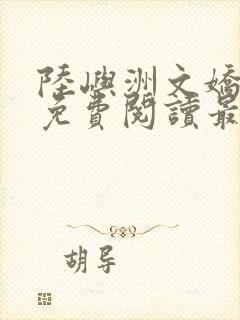 陸嶼洲文嬌
免費閱讀最
胡导